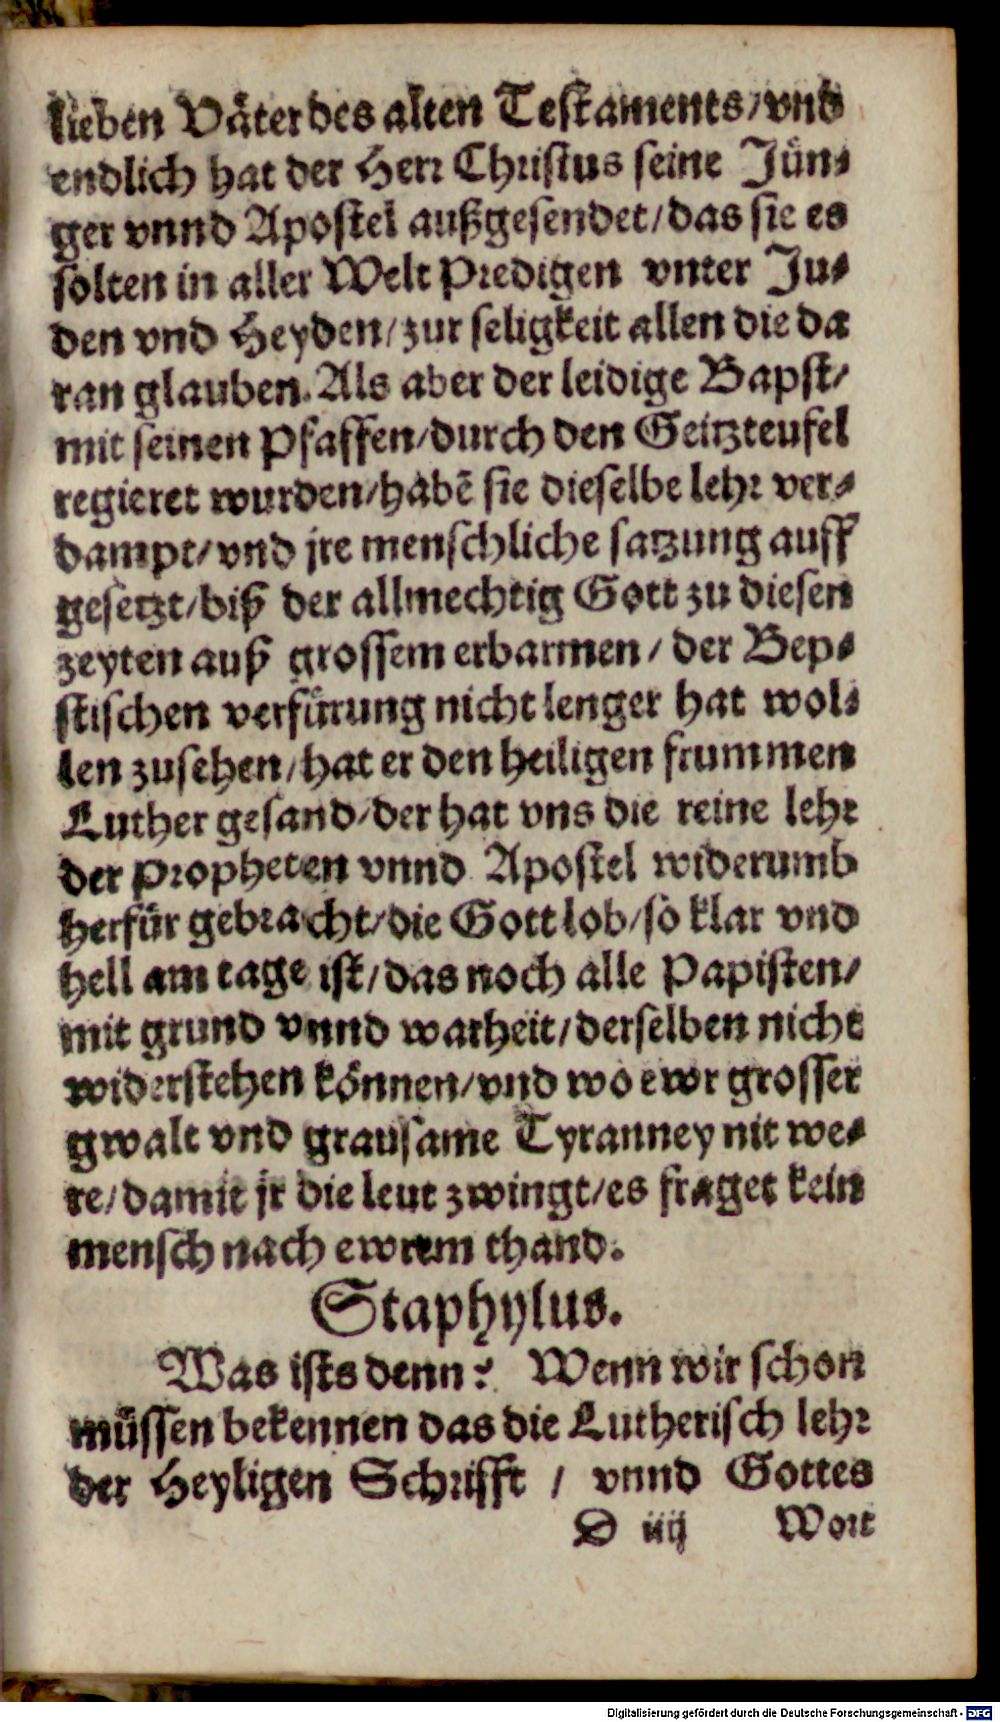 lieben Väter des alten Testaments / vnd
endlich hat der Herr Christus seine Jün-
ger vnnd Apostel außgesendet / das sie es
solten in aller Welt Predigen vnter Ju-
den vnd Heyden / zur seligkeit allen die da
ran glauben. Als aber der leidige Bapst /
mit seinen Pfaffen / durch den Geitzteufel
regieret wurden / habē sie dieselbe lehr ver-
dampt / vnd jre menschliche satzung auff
gesetzt / biß der allmechtig Gott zu diesen
zeyten auß grossem erbarmen / der Bep-
stischen verfürung nicht lenger hat wol-
len zusehen / hat er den heiligen frummen
Luther gesand / der hat vns die reine lehr
der Propheten vnnd Apostel widerumb
herfür gebracht / die Gott lob / so klar vnd
hell am tage ist / das noch alle Papisten /
mit grund vnnd warheit / derselben nicht
widerstehen können / vnd wo ewr grosser
gwalt vnd grausame Tyranney nit we-
re / damit jr die leut zwingt / es fraget kein
mensch nach ewrem thand.
Staphylus.
Was ists denn? Wenn wir schon
müssen bekennen das die Lutherisch lehr
der Heyligen Schrifft / vnnd Gottes
D iiij Wort
Digitalisierung gefördert durch die Deutsche Forschungsgemeinschaft - DFG